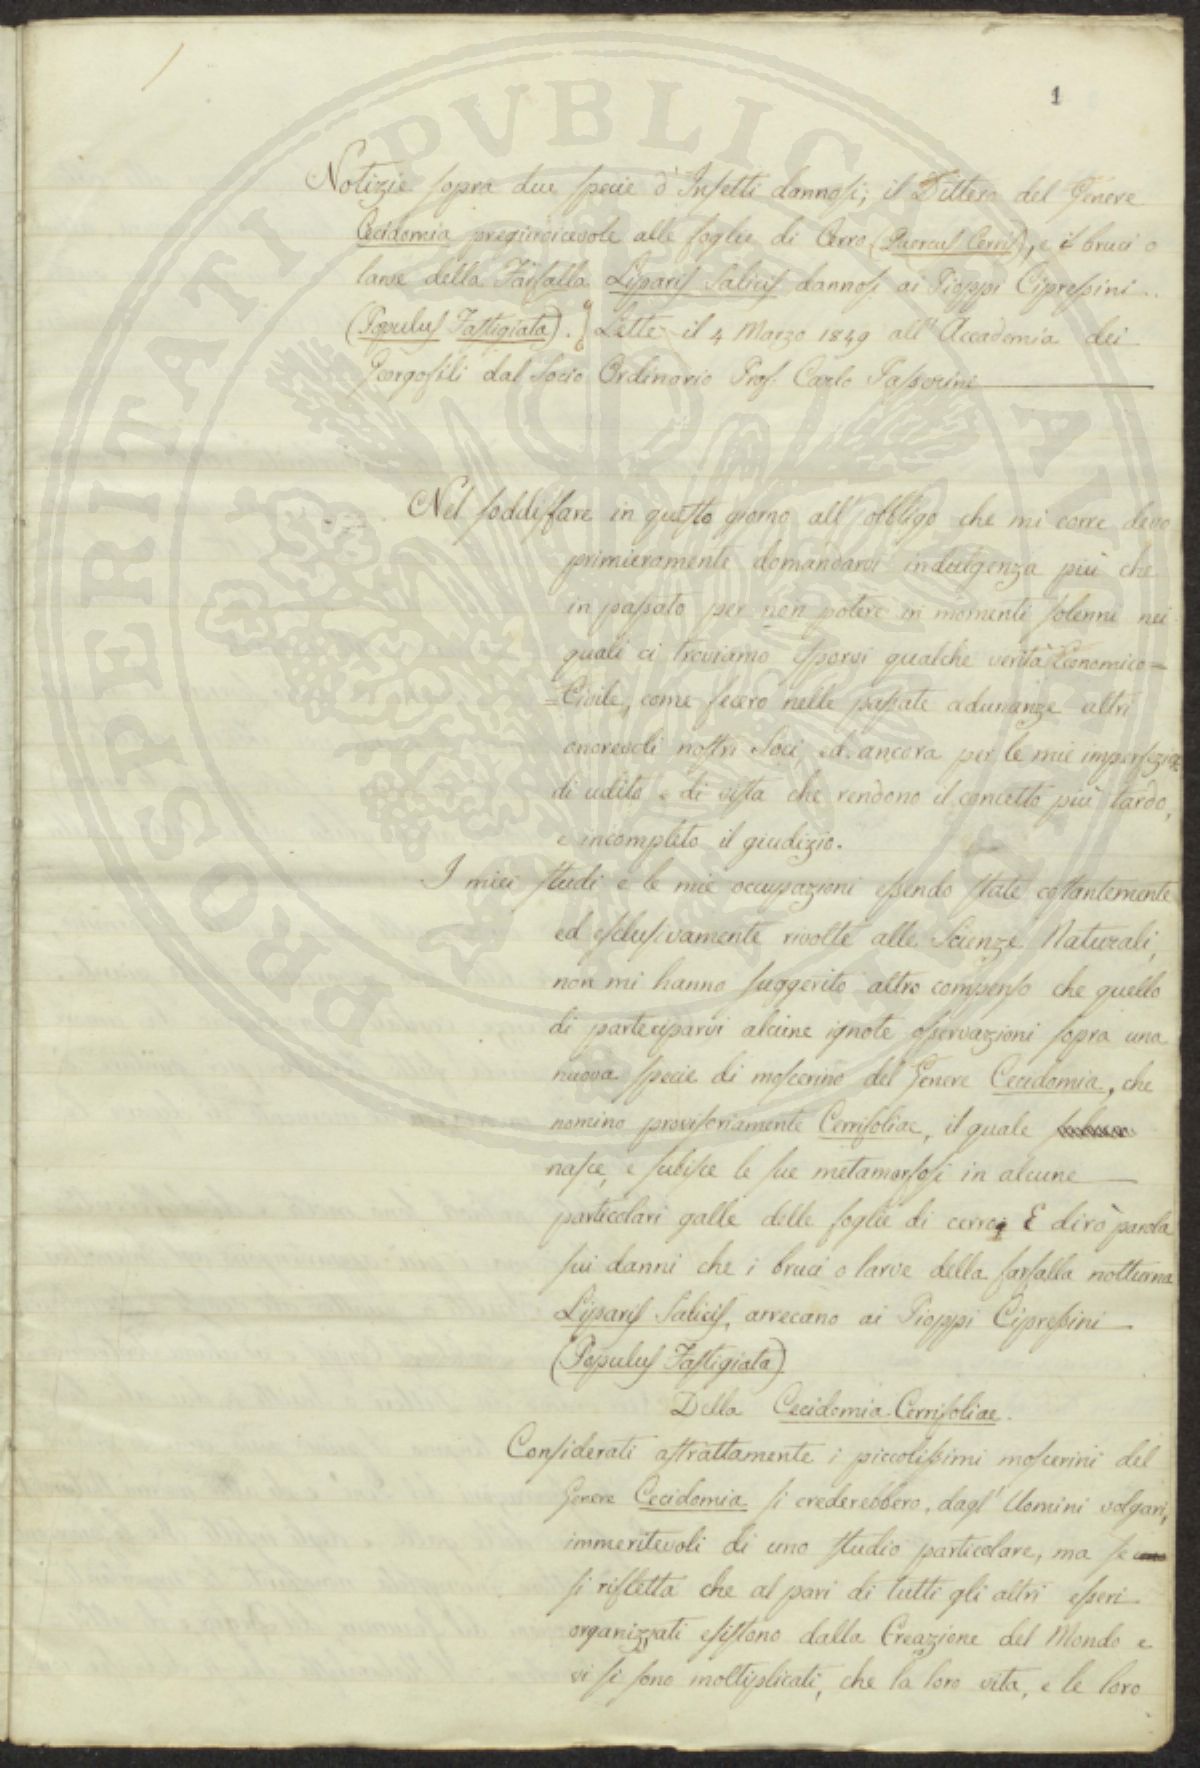 1
Notizie sopra due specie d'Insetti dannosi; il Dittero del Genere
Cecidomia pregiudicevole alle foglie di Cerro (Quercus Cerris), e i bruci o
larve della Farfalla Liparis Salicis dannosi ai Pioppi Cipressini
(Populus Fastigiata). Lette il 4 Marzo 1849 all'Accademia dei
Georgofili dal Socio Ordinario Prof. Carlo Passerini
Nel soddisfare in questo giorno all'obbligo che mi corre devo
primieramente domandarvi indulgenza più che
in passato per non potere in momenti solenni nei
quali ci troviamo esporvi qualche verità Economico=
=Civile, come fecero nelle passate adunanze altri
onorevoli nostri Soci, ed ancora per le mie imperfezioni
di udito e di vista che rendono il concetto più tardo,
e incompleto il giudizio.
I miei studi e le mie occupazioni essendo state costantemente
ed esclusivamente rivolte alle Scienze Naturali,
non mi hanno suggerito altro compenso che quello
di parteciparvi alcune ignote osservazioni sopra una
nuova specie di moscerino del Genere Cecidomia, che
nomino provisoriamente Cerrifoliae, il quale
nasce, e subisce le sue metamorfosi in alcune
particolari galle delle foglie di cerro; E dirò parola
sui danni che i bruci o larve della farfalla notturna
Liparis Salicis, arrecano ai Pioppi Cipressini
(Populus Fastigiata)
Della Cecidomia Cerrifoliae.
Considerati astrattamente i piccolissimi moscerini del
Genere Cecidomia si crederebbero, dagl'Uomini volgari,
immeritevoli di uno studio particolare, ma se
si rifletta che al pari di tutti gli altri esseri
organizzati esistono dalla Creazione del Mondo e
vi si sono moltiplicati, che la loro vita, e le loro
PROSPERITATI PVBLICAE AVGENDAE